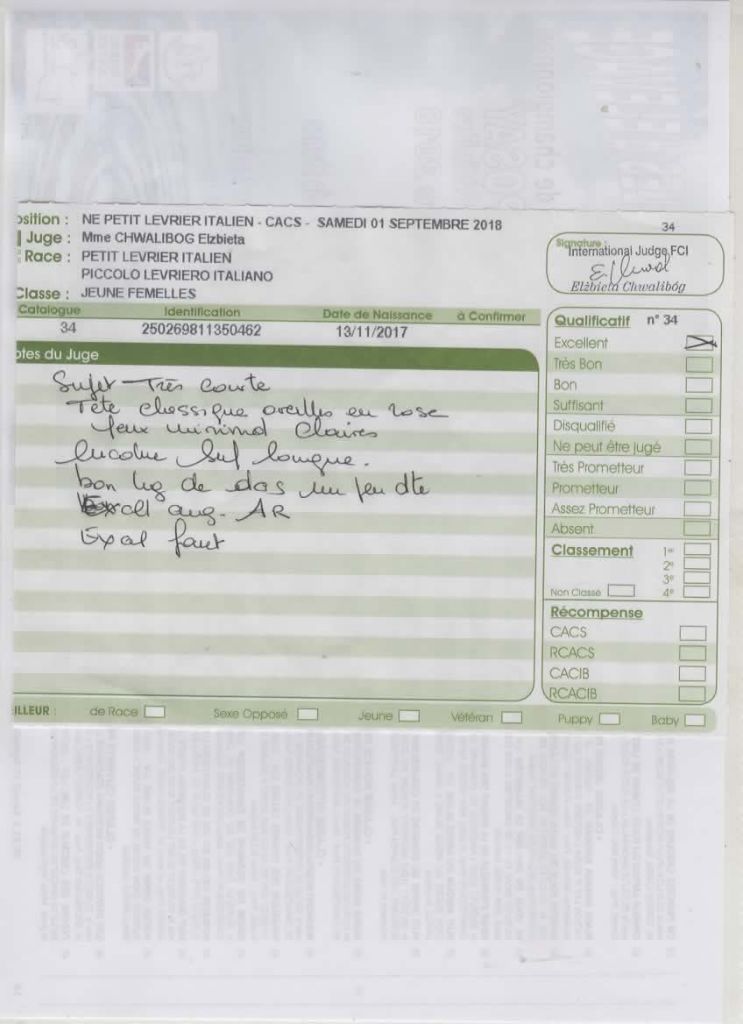 osition : NE PETIT LEVRIER ITALIEN - CACS - SAMEDI 01 SEPTEMBRE 2018
34
Juge : Mme CHWALIBOG Elzbieta
Race : PETIT LEVRIER ITALIEN
PICCOLO LEVRIERO ITALIANO
Classe : JEUNE FEMELLES
Signature :
International Judge FCI
Elżbieta Chwalibóg
Catalogue Identification Date de Naissance à Confirmer
34 250269811350462 13/11/2017
otes du Juge
Sujet Très courte
Tête classique oreilles en rose
Yeux minimal Claires
longue.
bon lig de dos un peu dte
Excell ang. AR
Excel
Qualificatif n° 34
Excellent
Très Bon
Bon
Suffisant
Disqualifié
Ne peut être jugé
Très Prometteur
Prometteur
Assez Prometteur
Absent
Classement 1er
2e
3e
Non Classé 4e
Récompense
CACS
RCACS
CACIB
RCACIB
ILLEUR : de Race Sexe Opposé Jeune Vétéran Puppy Baby